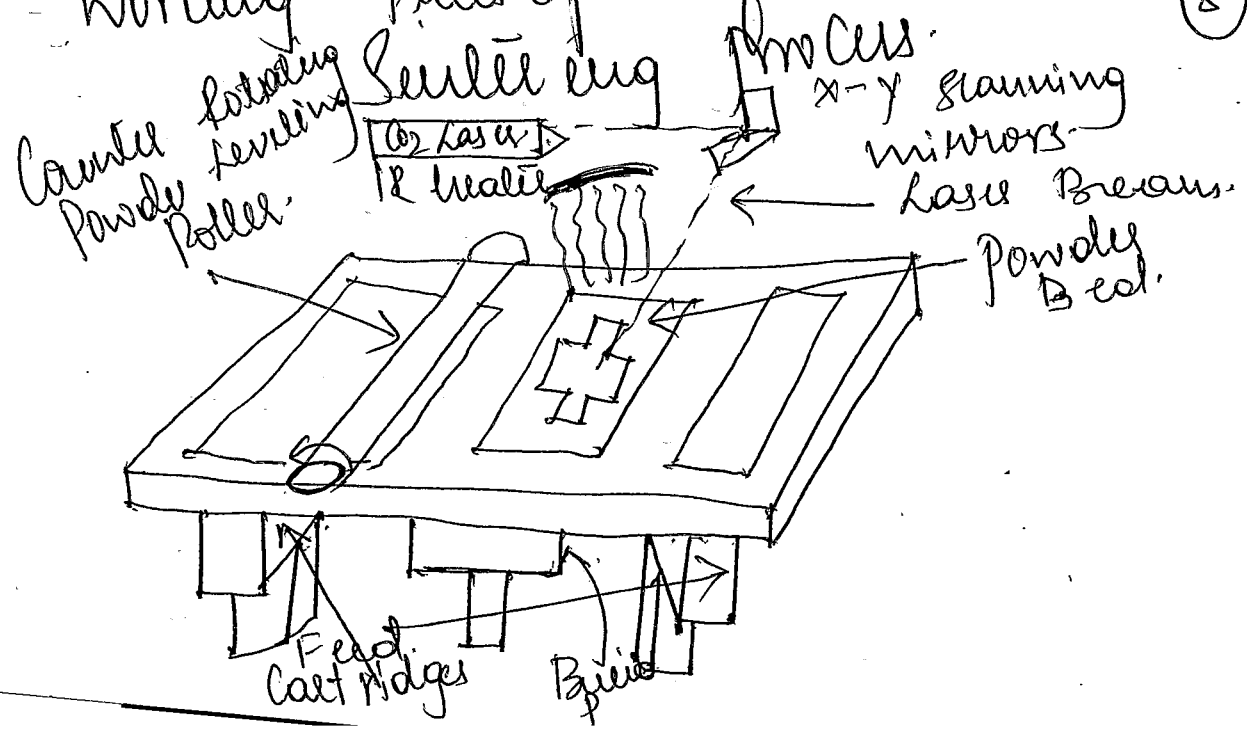 Working
Sintering Process.
Counter Rotating
Powder Leveling
Roller.
CO2 Laser
IR heater
x-y scanning
mirrors.
Laser Beam.
Powder
Bed.
Feed
Cartridges